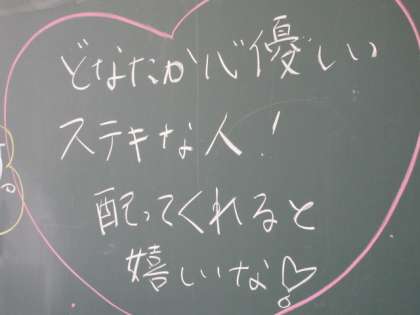 どなたか心優しい
ステキな人!
配ってくれると
嬉しいな♡